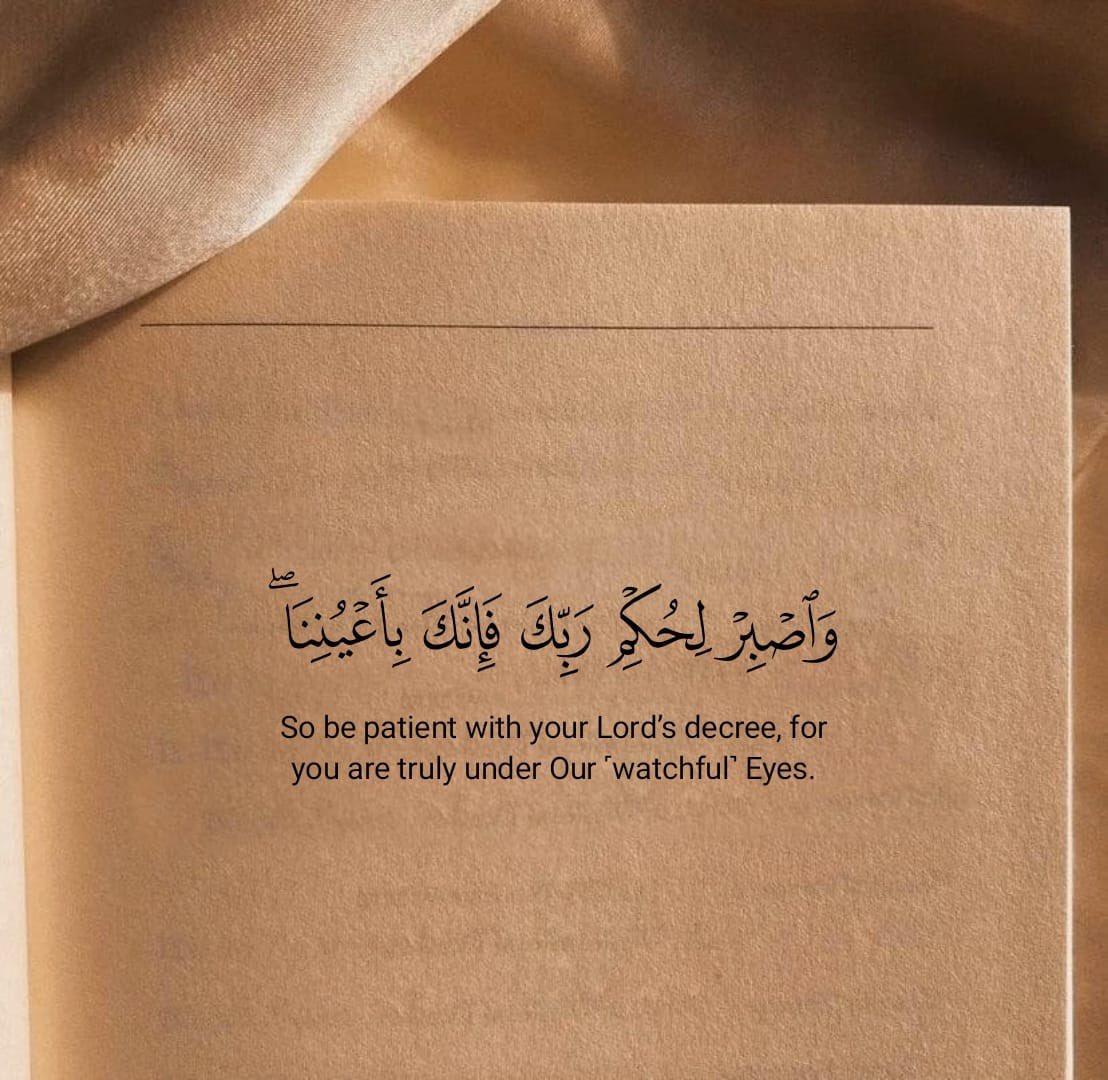 وَٱصۡبِرۡ لِحُكۡمِ رَبِّكَ فَإِنَّكَ بِأَعۡيُنِنَاۖ
So be patient with your Lord’s decree, for
you are truly under Our ˹watchful˺ Eyes.